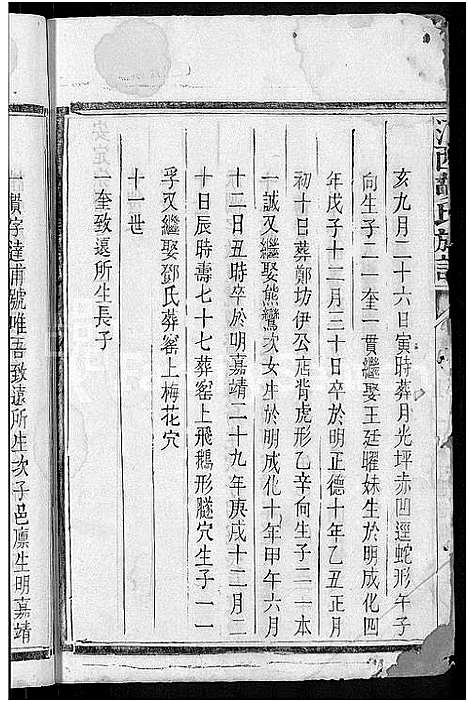 亥九月二十六日寅時葬月光坪赤凹逕蛇形午子
向生子二一奎一貫繼娶王廷曜妹生於明成化四
年戊子十二月三十日卒於明正德十年乙丑正月
初十日葬鄭坊伊公店背虎形乙辛向生子二一本
一誠又繼娶熊鸞次女生於明成化十年甲午六月
十二日丑時卒於明嘉靖二十九年庚戌十二月二
十日辰時壽七十七葬窑上飛鵝形膇穴生子一一
孚又繼娶鄧氏葬窑上梅花穴
十一世
一奎致遠所生長子
一貫字達甫號唯吾致遠所生次子邑廩生明嘉靖